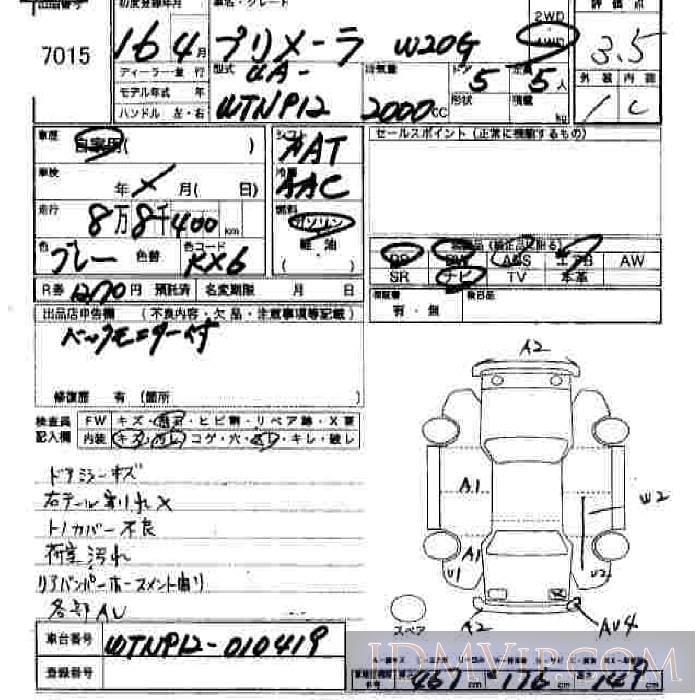 初度登録年月
車名・グレード
評価点
7015
16年4月
プリメーラ W20G
2WD
4WD
3.5
ディーラー車 並行
モデル年式 年
ハンドル 左・右
型式
UA-
WTNP12
排気量
2000cc
ドア
5
形状
定員
5人
積載
kg
外装
内装
C
車歴
自家用( )
シフト
AAT
車検
年 月( 日)
冷房
AAC
走行
8万8千400km
燃料
ガソリン
軽油
( )
色
グレー
色替
色コード
KX6
セールスポイント(正常に稼動するもの)
PS PW ABS エアB AW
SR ナビ TV 本革
有・無
後日品
R券 12170円 預託済 名変期限 月 日
出品店申告欄 (不良内容・欠品・注意事項等記載)
バックモニター付
修復歴 有(箇所 )
検査員
記入欄
FW キズ・飛石・ヒビ割・リペア跡・X要
内装 キズ・汚レ・コゲ・穴・キレ・破レ
ドアミラーキズ
右テール割れX
トノカバー不良
荷室汚れ
リアバンパーホースメント曲り
各部AU
A2
A1
U2
A1
U1
U2
スペア
A2
AU4
車台番号 WTNP12-010419
登録番号
長 467cm 幅 176cm 高 149cm
JDMVIP.com